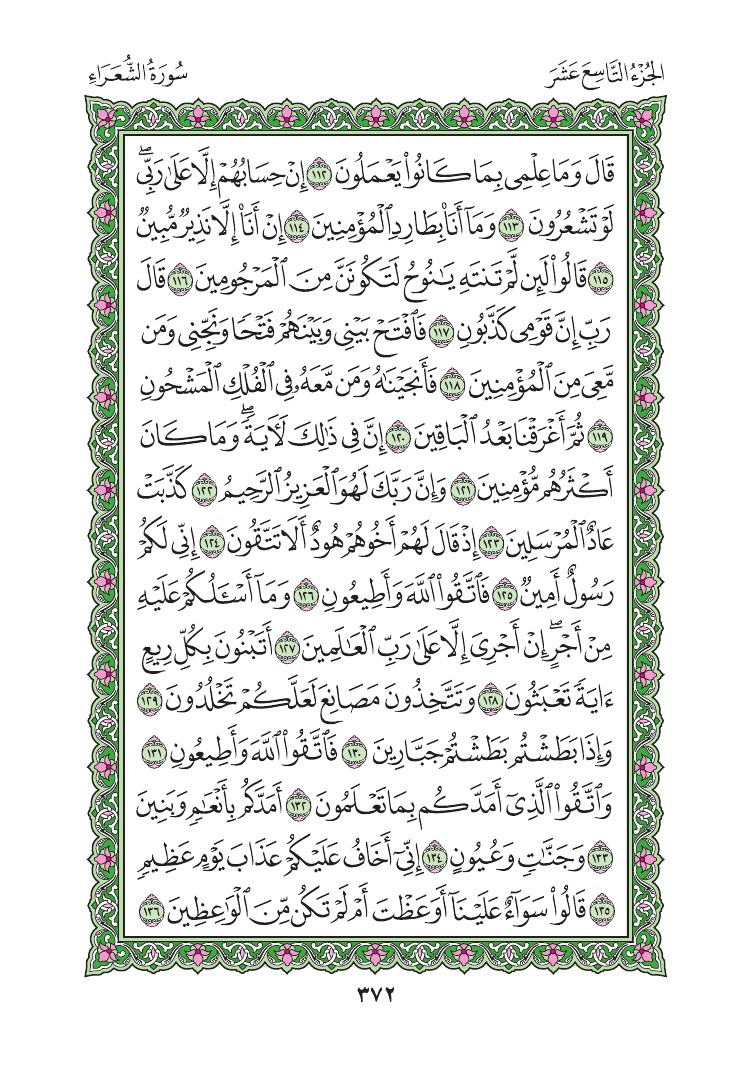 الجُزْءُ التَّاسِعَ عَشَرَ
سُورَةُ الشُّعَرَاءِ
قَالَ وَمَا عِلْمِى بِمَا كَانُوا۟ يَعْمَلُونَ ١١٢ إِنْ حِسَابُهُمْ إِلَّا عَلَىٰ رَبِّىۖ
لَوْ تَشْعُرُونَ ١١٣ وَمَآ أَنَا۠ بِطَارِدِ ٱلْمُؤْمِنِينَ ١١٤ إِنْ أَنَا۠ إِلَّا نَذِيرٌ مُّبِينٌ
١١٥ قَالُوا۟ لَئِن لَّمْ تَنتَهِ يَٰنُوحُ لَتَكُونَنَّ مِنَ ٱلْمَرْجُومِينَ ١١٦ قَالَ
رَبِّ إِنَّ قَوْمِى كَذَّبُونِ ١١٧ فَٱفْتَحْ بَيْنِى وَبَيْنَهُمْ فَتْحًا وَنَجِّنِى وَمَن
مَّعِىَ مِنَ ٱلْمُؤْمِنِينَ ١١٨ فَأَنجَيْنَٰهُ وَمَن مَّعَهُۥ فِى ٱلْفُلْكِ ٱلْمَشْحُونِ
١١٩ ثُمَّ أَغْرَقْنَا بَعْدُ ٱلْبَاقِينَ ١٢٠ إِنَّ فِى ذَٰلِكَ لَـَٔايَةًۖ وَمَا كَانَ
أَكْثَرُهُم مُّؤْمِنِينَ ١٢١ وَإِنَّ رَبَّكَ لَهُوَ ٱلْعَزِيزُ ٱلرَّحِيمُ ١٢٢ كَذَّبَتْ
عَادٌ ٱلْمُرْسَلِينَ ١٢٣ إِذْ قَالَ لَهُمْ أَخُوهُمْ هُودٌ أَلَا تَتَّقُونَ ١٢٤ إِنِّى لَكُمْ
رَسُولٌ أَمِينٌ ١٢٥ فَٱتَّقُوا۟ ٱللَّهَ وَأَطِيعُونِ ١٢٦ وَمَآ أَسْـَٔلُكُمْ عَلَيْهِ
مِنْ أَجْرٍۖ إِنْ أَجْرِىَ إِلَّا عَلَىٰ رَبِّ ٱلْعَٰلَمِينَ ١٢٧ أَتَبْنُونَ بِكُلِّ رِيعٍ
ءَايَةً تَعْبَثُونَ ١٢٨ وَتَتَّخِذُونَ مَصَانِعَ لَعَلَّكُمْ تَخْلُدُونَ ١٢٩
وَإِذَا بَطَشْتُم بَطَشْتُمْ جَبَّارِينَ ١٣٠ فَٱتَّقُوا۟ ٱللَّهَ وَأَطِيعُونِ ١٣١
وَٱتَّقُوا۟ ٱلَّذِىٓ أَمَدَّكُم بِمَا تَعْلَمُونَ ١٣٢ أَمَدَّكُم بِأَنْعَٰمٍ وَبَنِينَ
١٣٣ وَجَنَّٰتٍ وَعُيُونٍ ١٣٤ إِنِّىٓ أَخَافُ عَلَيْكُمْ عَذَابَ يَوْمٍ عَظِيمٍ
١٣٥ قَالُوا۟ سَوَآءٌ عَلَيْنَآ أَوَعَظْتَ أَمْ لَمْ تَكُن مِّنَ ٱلْوَٰعِظِينَ ١٣٦
٣٧٢